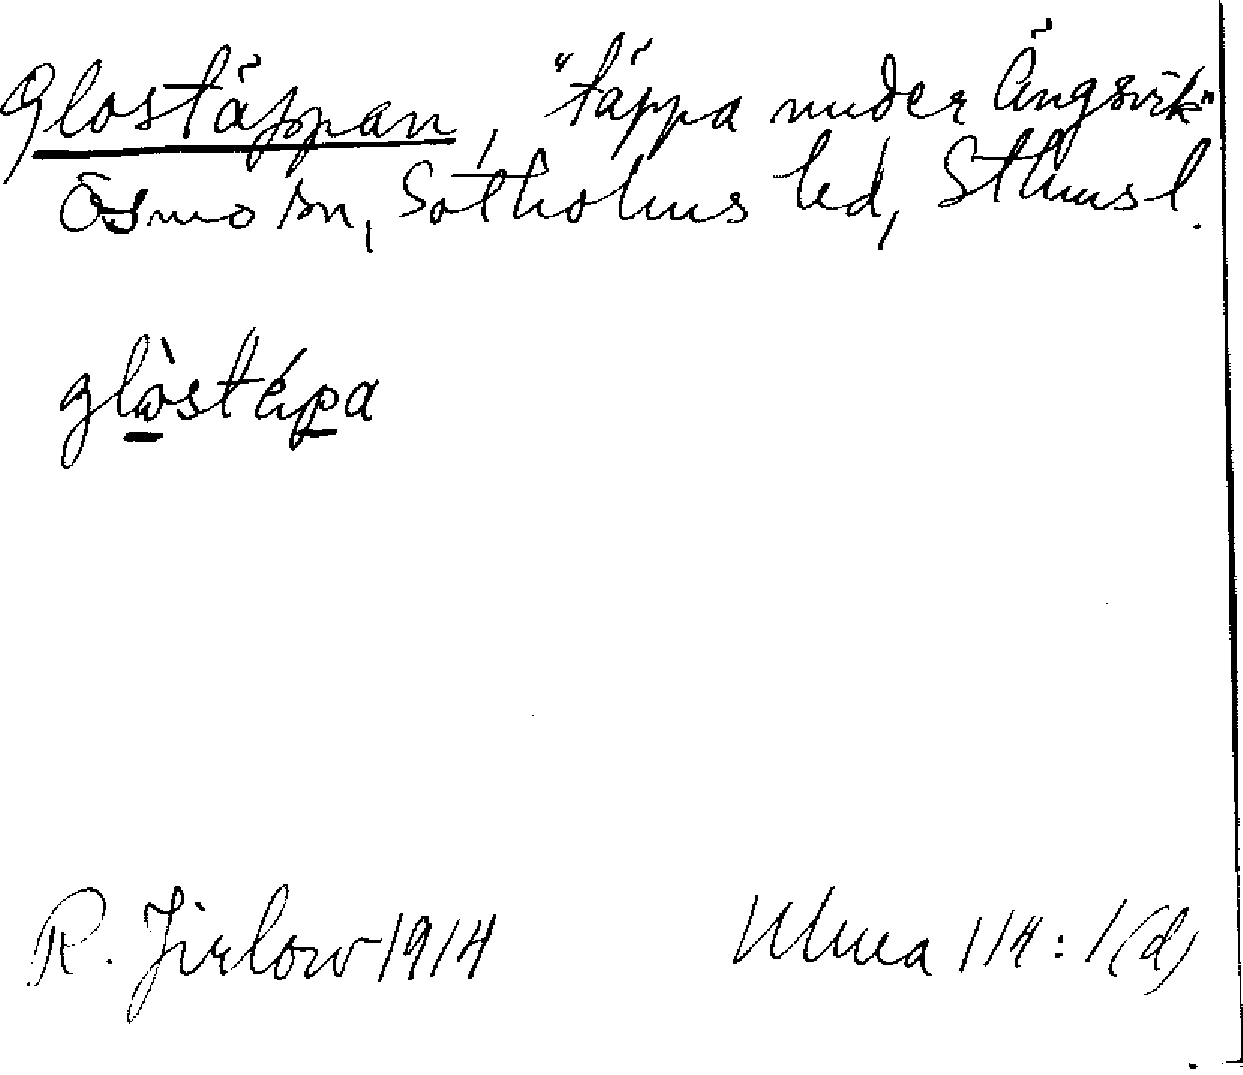 Glostäppan, "täppa under Ängsvik"
Ösmo sn, Sotholms hd, Sthms l.
glòstépa
R. Jirlow 1914
Ulma 114:1(d)